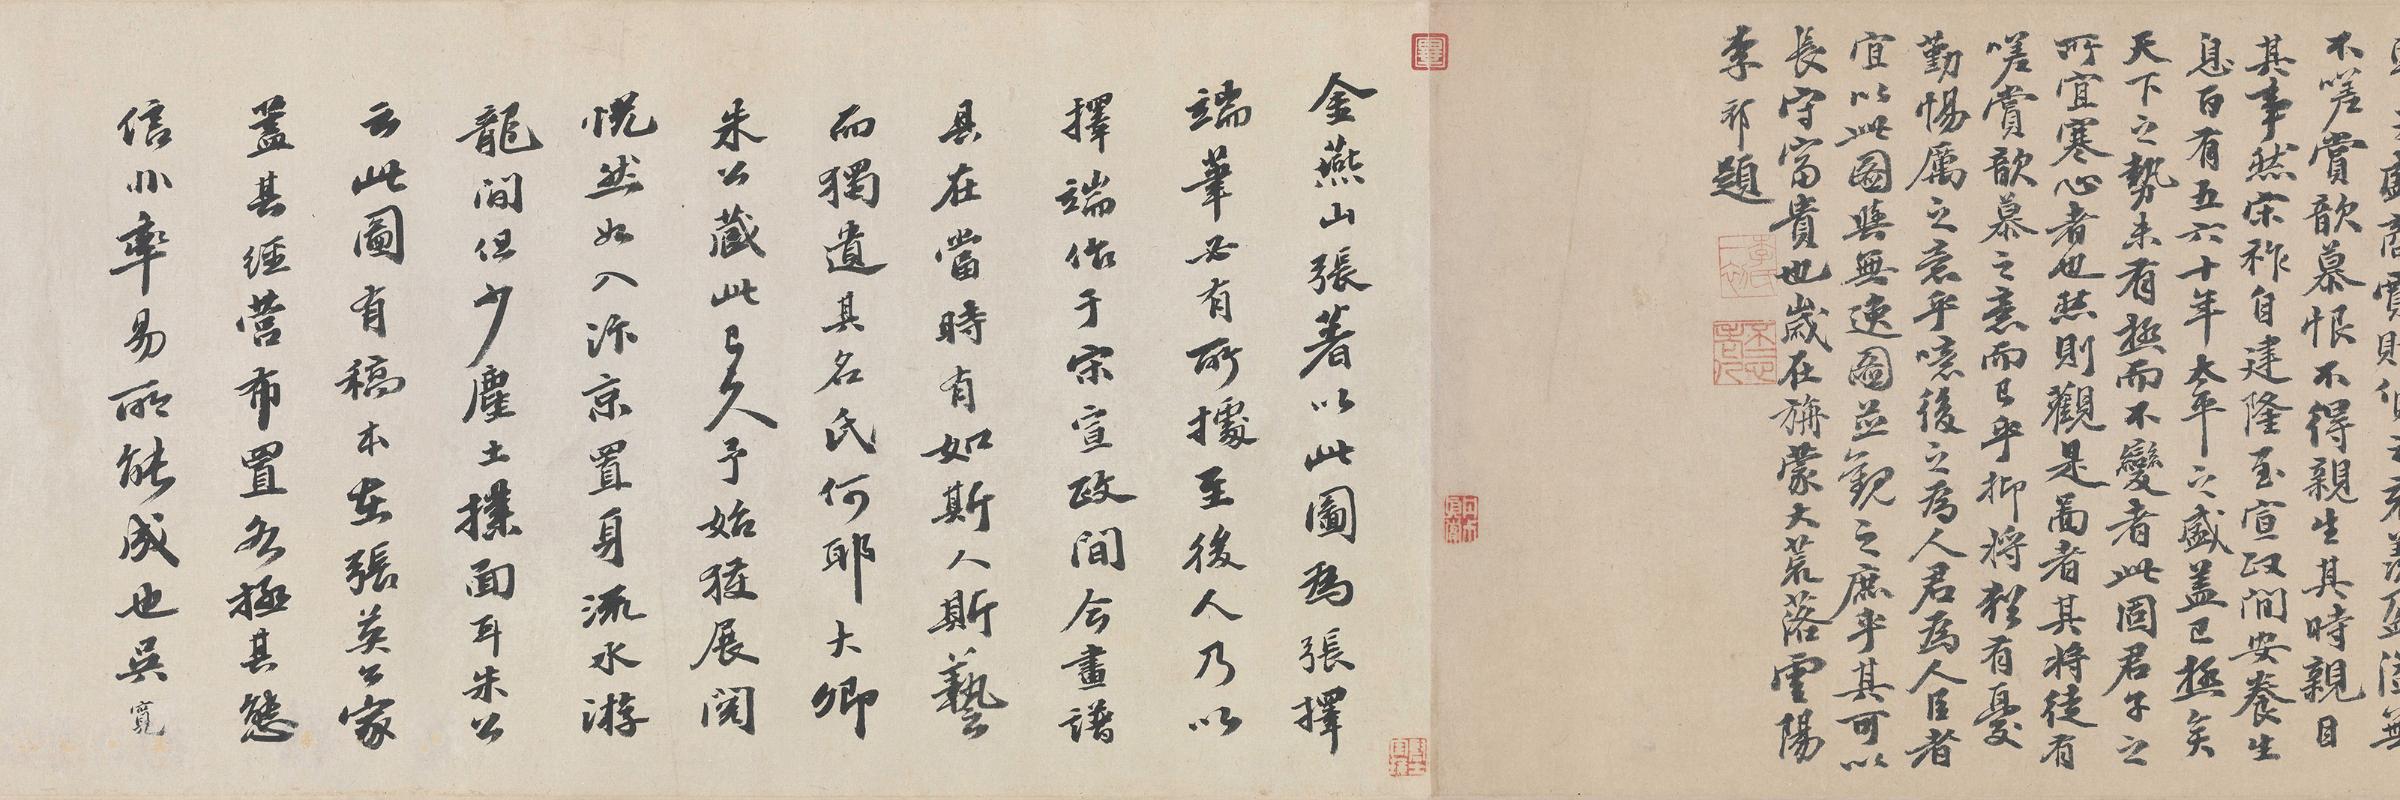 不嗟賞歆慕恨不得親生其時親目
其事然宋祚自建隆至宣政間安養生
息百有五六十年太平之盛蓋已極矣
天下之勢未有極而不變者此固君子之
所宜寒心者也然則觀是圖者其將徒有
嗟賞歆慕之意而已乎抑將猶有憂
勤惕厲之意乎噫後之為人君為人臣者
宜以此圖與無逸圖並觀之庶乎其可以
長守富貴也歲在旃蒙大荒落雲陽
李祁題
金燕山張著以此圖為張擇
端筆必有所據至後人乃以
擇端作于宋宣政間今畫譜
具在當時有如斯人斯藝
而獨遺其名氏何耶大卿
朱公藏此已久予始獲展閱
恍然如入汴京置身流水游
龍間但少塵土撲面耳朱公
云此圖有稿本在張英公家
蓋其經營布置各極其態
信非率易所能成也吳寬